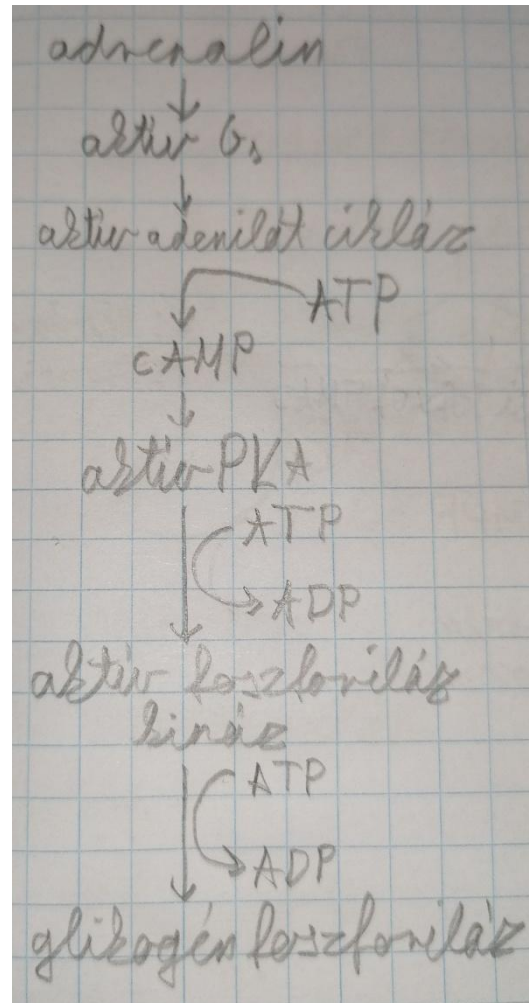 adrenalin
aktiv Gs
aktiv adenilát cikláz
ATP
cAMP
aktiv PKA
ATP
ADP
aktiv foszforiláz
kináz
ATP
ADP
glikogén foszforiláz